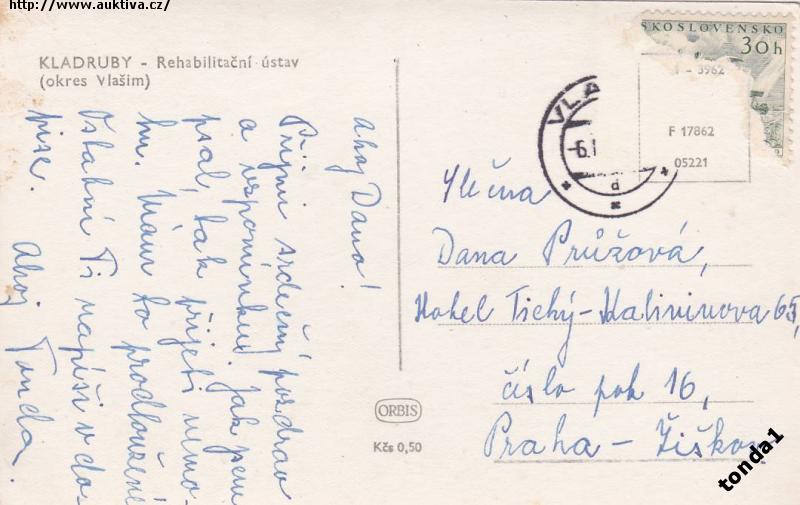 http://www.auktiva.cz/
KLADRUBY - Rehabilitační ústav
(okres Vlašim)
Ahoj Dano!
Přijmi srdečný pozdrav
a vzpomínku. Jak jsem
psal, tak přijeti nemo-
hu. Mám to prodloužené
Ostatní Ti napíši v do-
pise.
Ahoj Tonda.
ORBIS
Kčs 0,50
ČESKOSLOVENSKO
30 h
VLA
-6.1
d
F 17862
05221
Slečna
Dana Průžová,
Hotel Tichý-Kalininova 65,
číslo pok 16,
Praha - Žižkov
tonda1